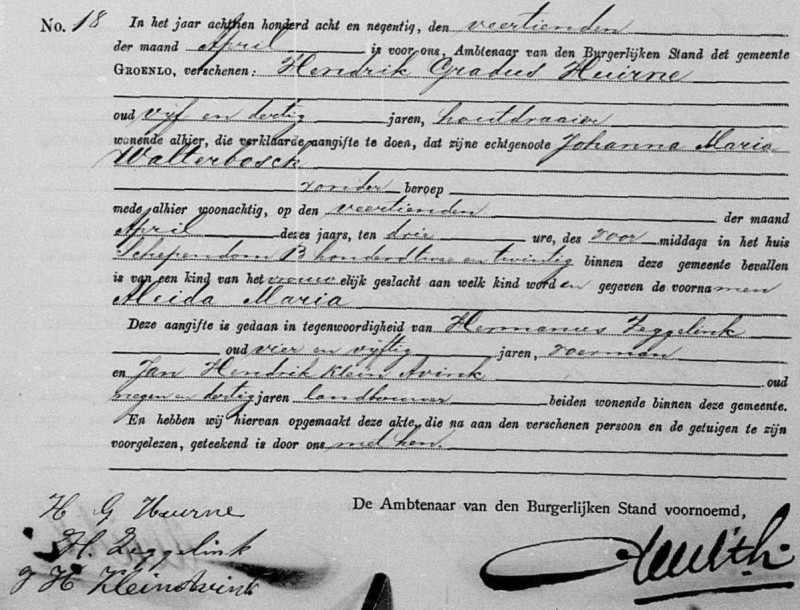 No. 18 In het jaar achttien honderd acht en negentig, den veertienden
der maand April is voor ons, Ambtenaar van den Burgerlijken Stand det gemeente
GROENLO, verschenen: Hendrik Gradus Huirne
oud vijf en dertig jaren, houtdraaier
wonende alhier, die verklaarde aangifte te doen, dat zijne echtgenoote Johanna Maria
Walterbosch
zonder beroep
mede alhier woonachtig, op den veertienden der maand
April dezes jaars, ten drie ure, des voor middags in het huis
Schependom B honderd twee en twintig binnen deze gemeente bevallen
is van een kind van het vrouwelijk geslacht aan welk kind worden gegeven de voornamen
Aleida Maria
Deze aangifte is gedaan in tegenwoordigheid van Hermanus Zeggelink
oud vier en vijftig jaren, voerman
en Jan Hendrik Klein Avink oud
negen en dertig jaren landbouwer beiden wonende binnen deze gemeente.
En hebben wij hiervan opgemaakt deze akte, die na aan den verschenen persoon en de getuigen te zijn
voorgelezen, geteekend is door ons met hen.
De Ambtenaar van den Burgerlijken Stand voornoemd,
H G Huirne
H. Zeggelink
J H Klein Avink